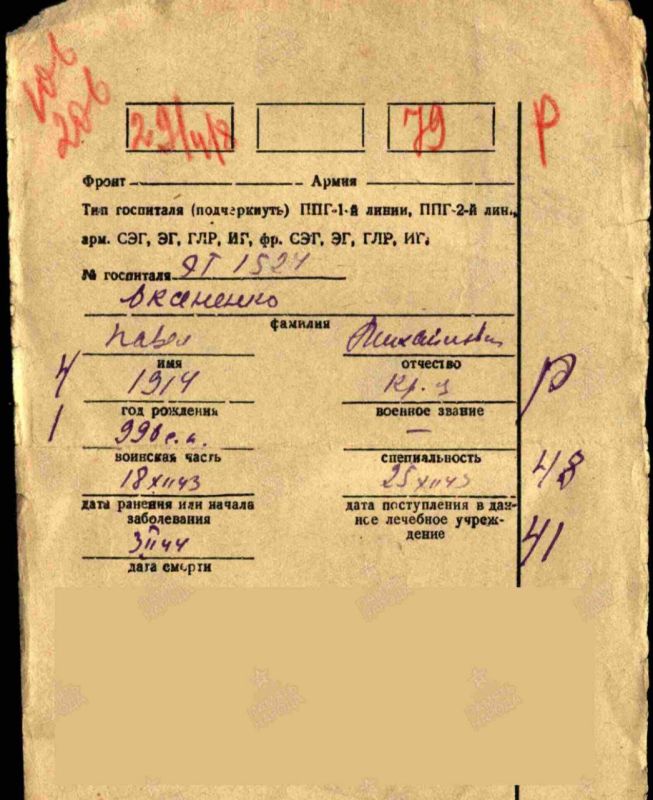 29/4/8 79 Р
Фронт Армия
Тип госпиталя (подчеркнуть) ППГ-1-й линии, ППГ-2-й лин.,
арм. СЭГ, ЭГ, ГЛР, ИГ, фр. СЭГ, ЭГ, ГЛР, ИГ.
№ госпиталя ЭГ 1524
Аксененко
фамилия
Павел Михайлович
имя отчество
4 1914 Кр-ц Р
год рождения военное звание
1 996 с.п. —
воинская часть специальность
18 XII 43 25 XII 43 48
дата ранения или начала дата поступления в дан-
заболевания ное лечебное учреж-
дение
3 II 44 41
дата смерти